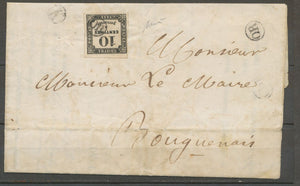 10
CENTIMES
Monsieur
Monsieur Le Maire
Bouguenais
OR